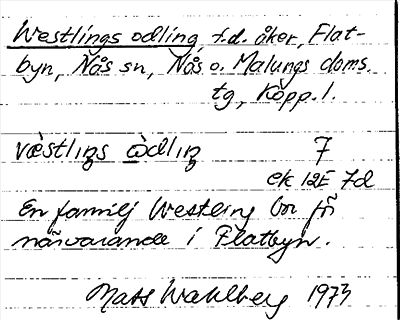 Westlings odling, f.d. åker, Flat-
byn, Nås sn, Nås o. Malungs doms.
tg, Kopp. l.
væ̀stliŋs ɷ̀dliŋ 7
ek 12E 7d
En familj Westling bor för
närvarande i Flatbyn.
Mats Wahlberg 1973